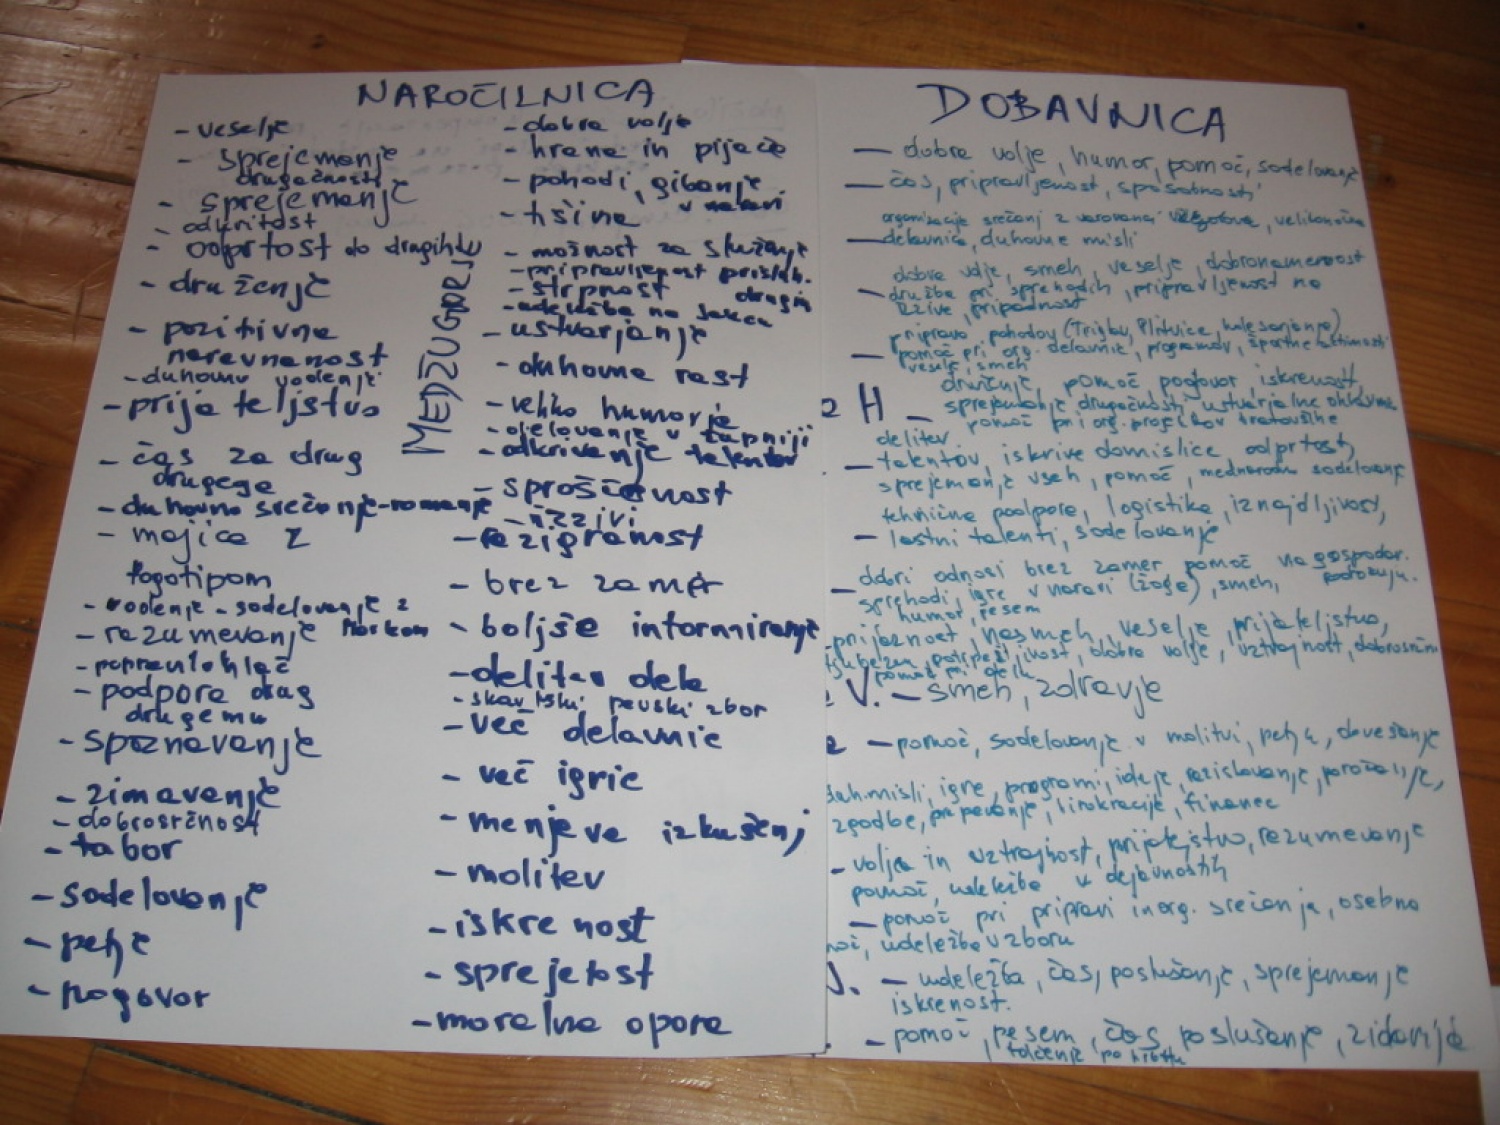 NAROČILNICA
- veselje
- sprejemanje
drugačnosti
- sprejemanje
- odkritost
- odprtost do drugih
- druženje
- pozitivna
naravnanost
- duhovno vodenje
- prijateljstvo
- čas za drug
drugega
- duhovno srečanje-romanje
- majica z
logotipom
- vodenje - sodelovanje z
- razumevanje Markom
- popravilo hlač
- podpora drug
drugemu
- spoznavanje
- zimovanje
- dobrosrčnost
- tabor
- sodelovanje
- petje
- pogovor
MEDŽUGORJE
- dobra volja
- hrana in pijača
- pohodi, gibanje
v naravi
- tišina
- možnost za služenje
- pripravljenost prisluh.
- strpnost drugim
- udeležba na
- ustvarjanje
- duhovna rast
- veliko humorja
- delovanje v
- odkrivanje talentov
- sproščenost
- izzivi
- razigranost
- brez zamer
- boljše informiranje
- delitev dela
- skavtski pevski zbor
- več delavnic
- več igric
- menjava izkušenj
- molitev
- iskrenost
- sprejetost
- moralna opora
DOBAVNICA
- dobra volja, humor, pomoč, sodelovanje
- čas, pripravljenost, sposobnosti
organizacija srečanj z varovanci velikonočna
- delavnica, duhovne misli
dobra volja, smeh, veselje, dobronamernost
- družba pri sprehodih, pripravljenost na
izzive, pripadnost
priprava pohodov (Triglav, Plitvice, kolesarjenje)
- pomoč pri org. delavnic, programov, športne aktivnosti
veselje, smeh
H - druženje, pomoč pogovor, iskrenost,
sprejemanje drugačnosti ustvarjalne
pomoč pri org. projektov
delitev
- talentov, iskrive domislice, odprtost,
sprejemanje vseh, pomoč, mednarodno sodelovanje
tehnična podpora, logistika, iznajdljivost,
- lastni talenti, sodelovanje
dobri odnosi brez zamer pomoč na gospodar.
- sprehodi, igre v naravi (žoga), smeh,
humor, pesem
prijaznost, nasmeh, veselje, prijateljstvo,
potrpežljivost, dobra volja, vztrajnost, dobrosrčn
pomoč pri delu
V. - smeh, zdravje
- pomoč, sodelovanje v molitvi, petju,
misli, igre, programi, ideje, razislovanje,
zgodbe, prepevanje, birokracija, financ
- volja in vztrajnost, prijateljstvo, razumevanje
pomoč, udeležba v dejavnostih
- pomoč pri pripravi in org. srečanja, osebna
udeležba v zboru
J. - udeležba, čas, poslušanje, sprejemanje
iskrenost.
- pomoč, pesem, čas, poslušanje, zidarija
tolčenje po